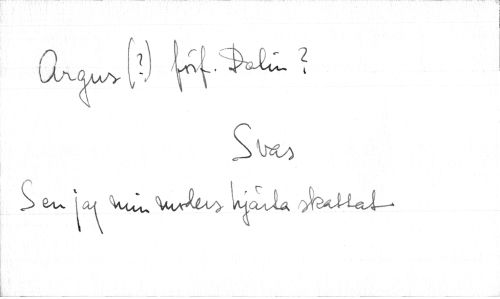 Argus (?) förf. Dalin?
Svas
Sen jag min moders hjärta skattat